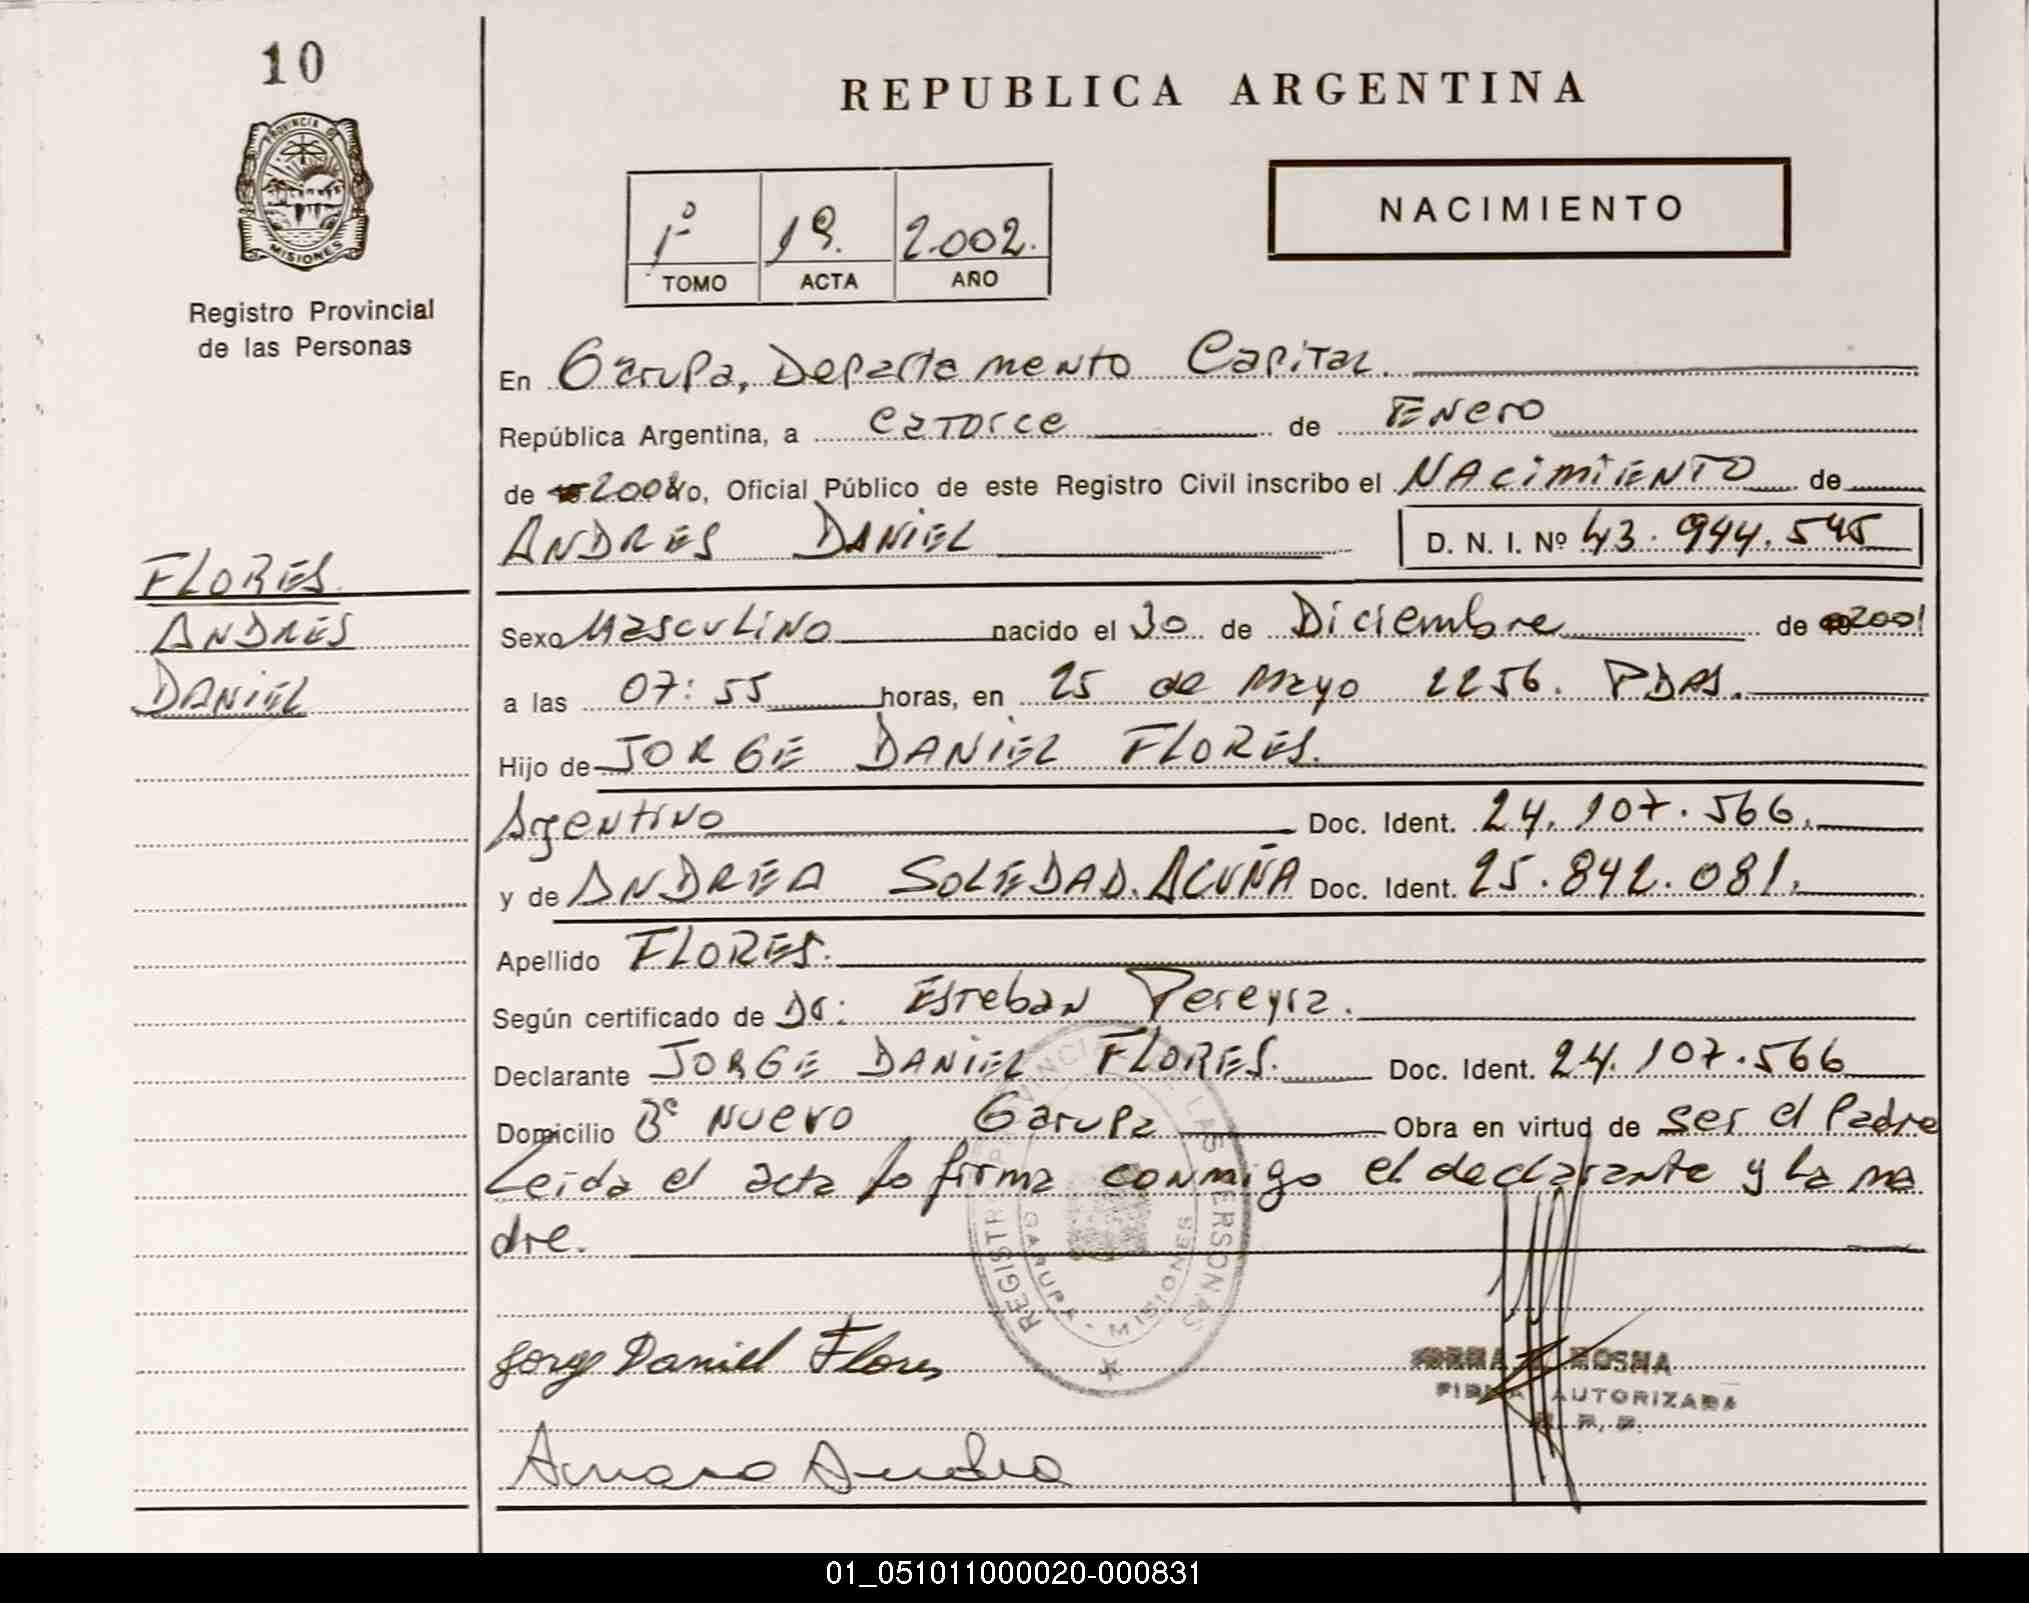 10
REPUBLICA ARGENTINA
PROVINCIA DE
MISIONES
Registro Provincial
de las Personas
1º 19. 2.002.
TOMO ACTA AÑO
NACIMIENTO
En Garupa, Departamento Capital.
República Argentina, a Catorce de Enero
de 2002 Yo, Oficial Público de este Registro Civil inscribo el NACIMIENTO de
ANDRES DANIEL D. N. I. Nº 43.944.545
FLORES
ANDRES
DANIEL
Sexo Masculino nacido el 30 de Diciembre de 2001
a las 07:55 horas, en 25 de Mayo 2256. PDAS.
Hijo de JORGE DANIEL FLORES.
Argentino Doc. Ident. 24.107.566.
y de ANDREA SOLEDAD ACUÑA Doc. Ident. 25.842.081.
Apellido FLORES.
Según certificado de Dr: Esteban Pereyra.
Declarante JORGE DANIEL FLORES. Doc. Ident. 24.107.566
Domicilio Bº Nuevo Garupa Obra en virtud de ser el Padre
Leida el acta la firma conmigo el declarante y la ma
dre.
REGISTRO PROVINCIAL DE LAS PERSONAS
GARUPA - MISIONES
Jorge Daniel Flores
MOSNA
FIRMA AUTORIZADA
R. P. P.
01_051011000020-000831